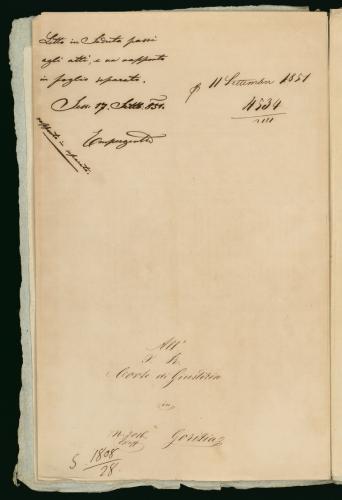 Letto in Seduta passi
agli atti, e un rapporto
in foglio separato.
17. Sett. 851.
rapporto in separato.
11 Settembre 1851
4534
All'
I. R.
Corte di Giustizia
in
Gorizia
S. 1808
28